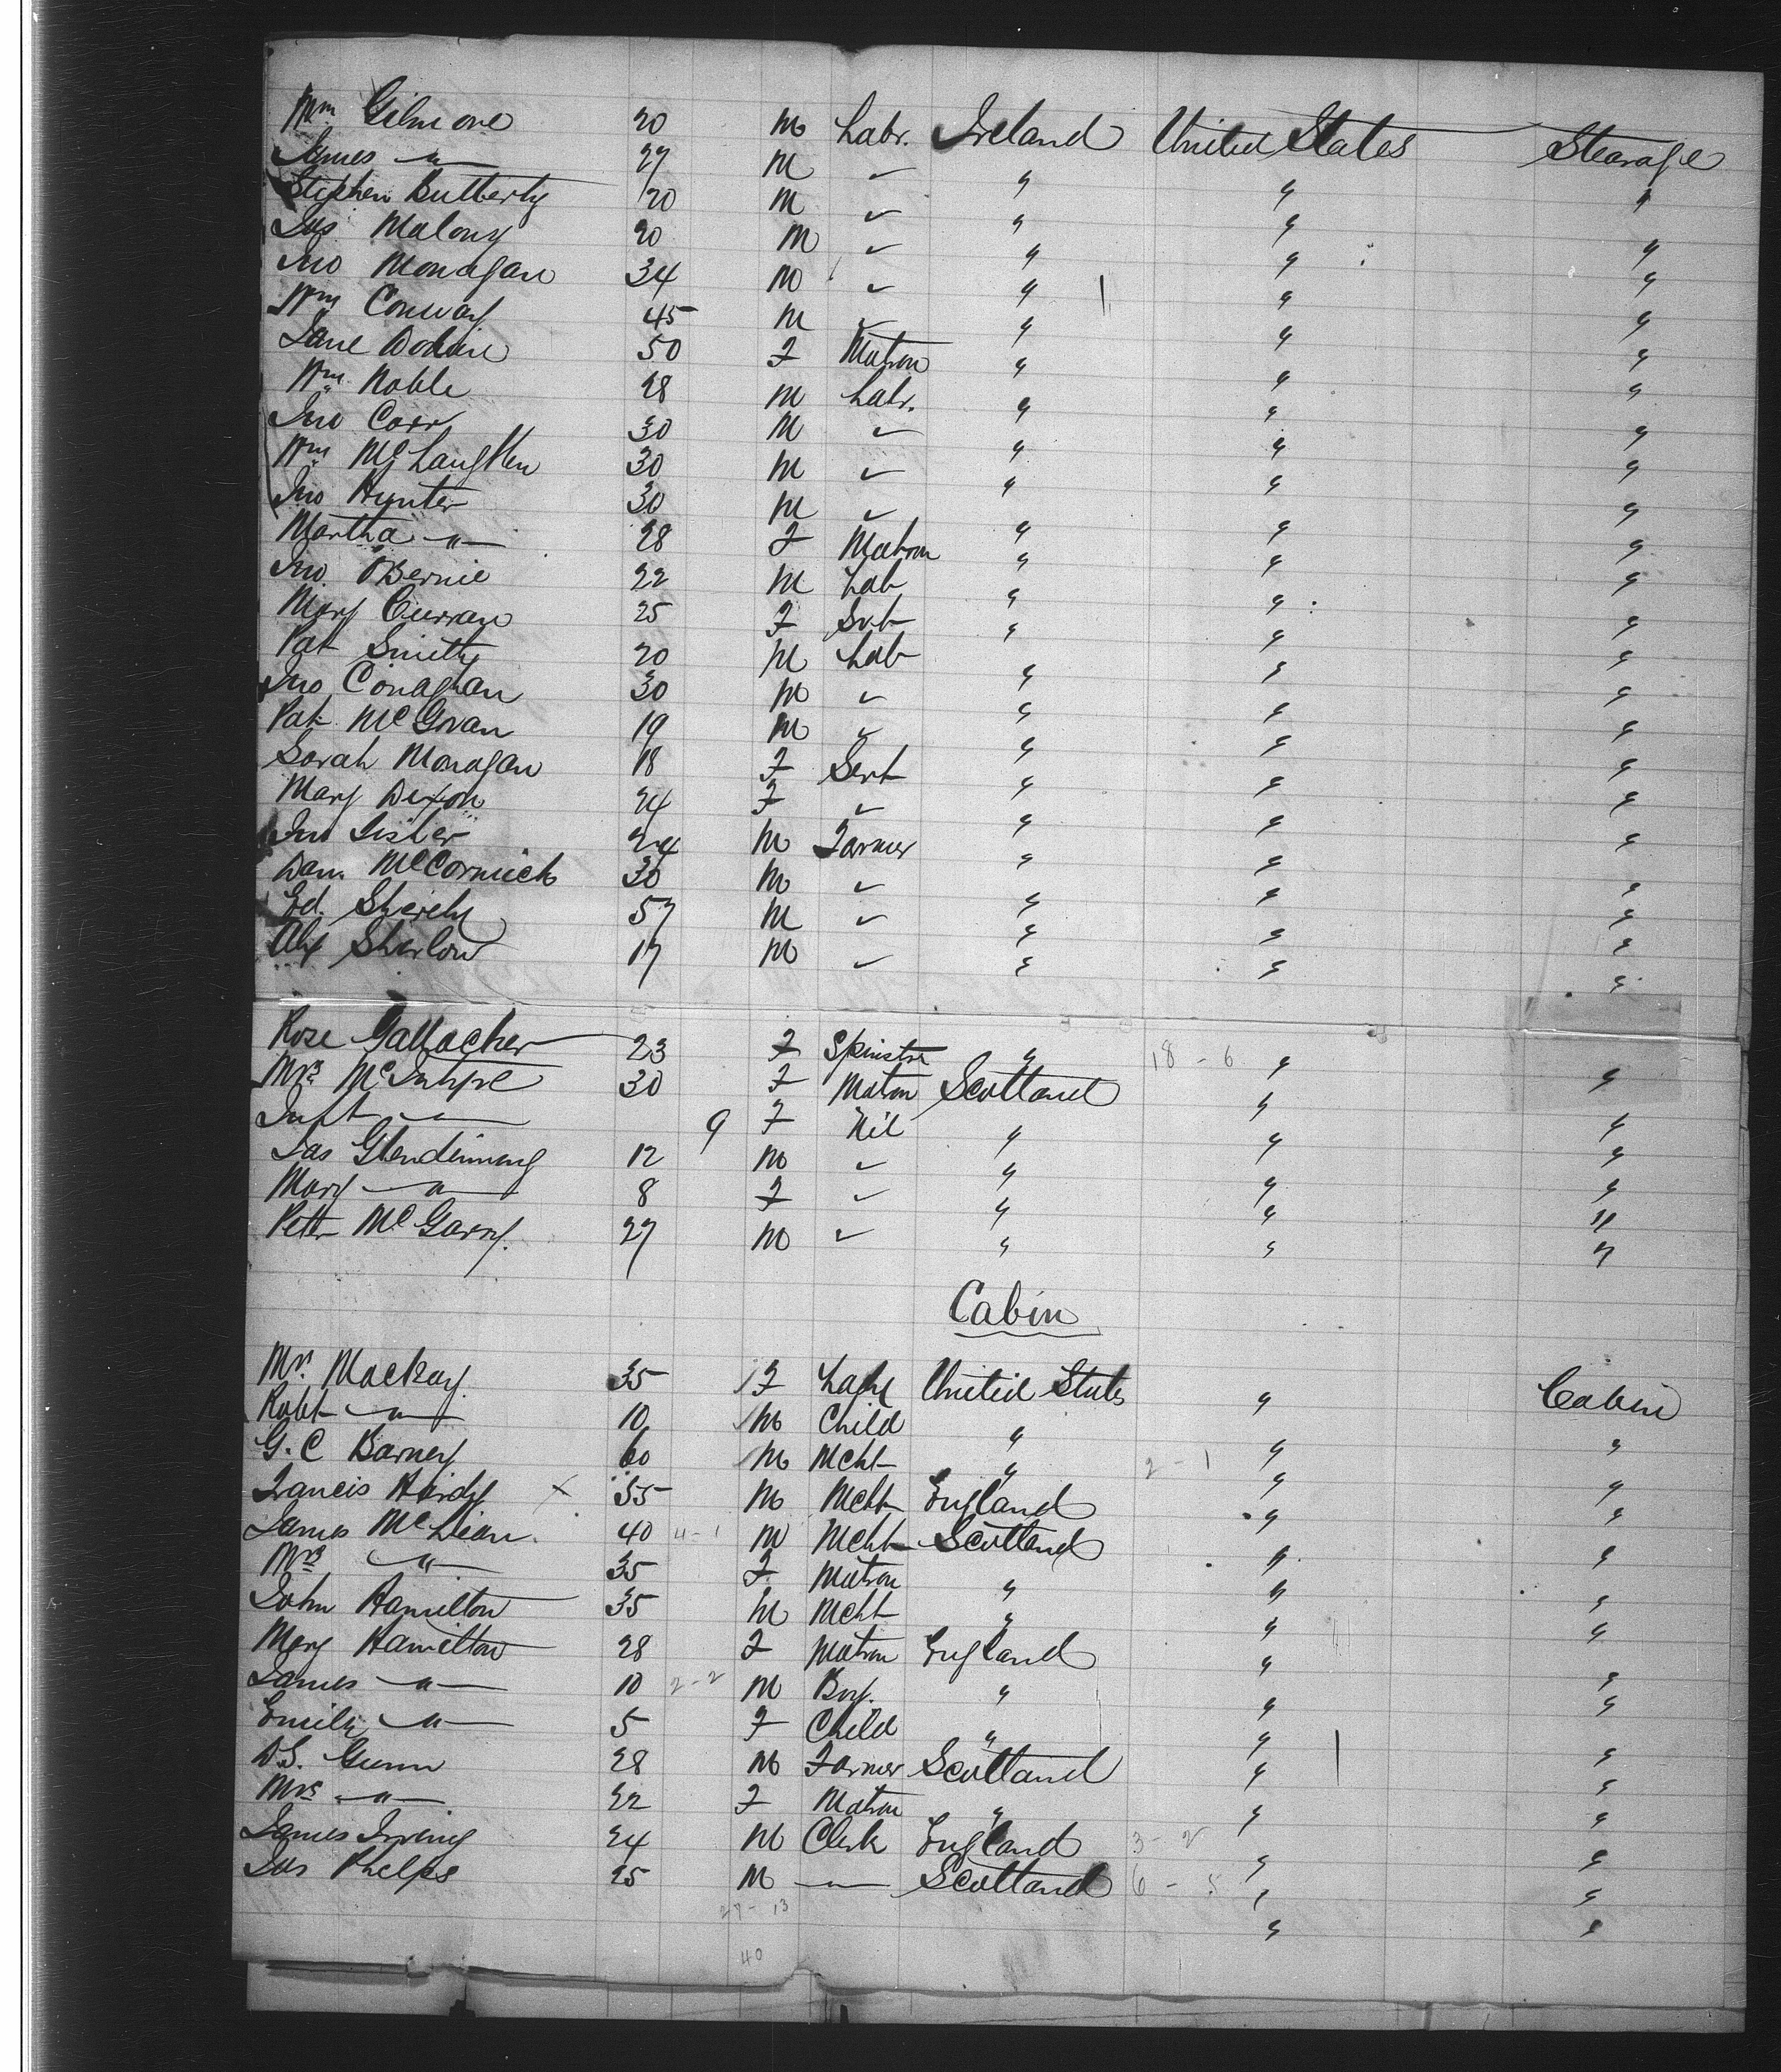 Wm Gilmore 20 M Labr. Ireland United States Stearage
James —"— 27 M ✓ " " "
Stephen Butterly 20 M ✓ " " "
Jas Malony 20 M ✓ " " "
Jno Monagan 34 M ✓ " " "
Wm Conway 45 M ✓ " " "
Jane 50 F Matron " " "
Wm Noble 28 M Labr. " " "
Jno Carr 30 M ✓ " " "
Wm McLaughlen 30 M ✓ " " "
Jno Hynter 30 M ✓ " " "
Martha —"— 28 F Matron " " "
Jno OBernie 22 M Lab " " "
Mary Curran 25 F Svt " " "
Pat Smith 20 M Lab " " "
Jno Conaghan 30 M ✓ " " "
Pat McGovan 19 M ✓ " " "
Sarah Monagan 18 F Servt " " "
Mary Dixon 24 F ✓ " " "
Jno Lister 24 M Farmer " " "
Dan. McCormick 30 M ✓ " " "
Ed. 57 M ✓ " " "
Alex Sharlow 17 M ✓ " " "
Rose Gallacher 23 F Spinster " 18 - 6 " "
Mrs McIntyre 30 F Matron Scotland " "
Inft —"— 9 F Nil " " "
Jas Glendinning 12 M ✓ " " "
Mary —"— 8 F ✓ " " "
Peter McGarry. 27 M ✓ " " "
Cabin
Mrs. Mackay. 35 F Lady United States " Cabin
Robt —"— 10 M Child " " "
G. C Barney 60 M Mcht " 2 - 1 " "
Francis Hardy × 35 M Mcht England " "
James McLean. 40 4-1 M Mcht Scotland " "
Mrs —"— 35 F Matron " " "
John Hamilton 35 M Mcht " " "
Mary Hamilton 28 F Matron England " "
James —"— 10 2-2 M Boy. " " "
Emily —"— 5 F Child " " "
D.S. Gunn 28 M Farmer Scotland " "
Mrs —"— 22 F Matron " " "
James Irving 24 M Clerk England 3- 2 " "
Jas Phelps 25 M —"— Scotland 6 - 5 " "
27 - 13 " "
40